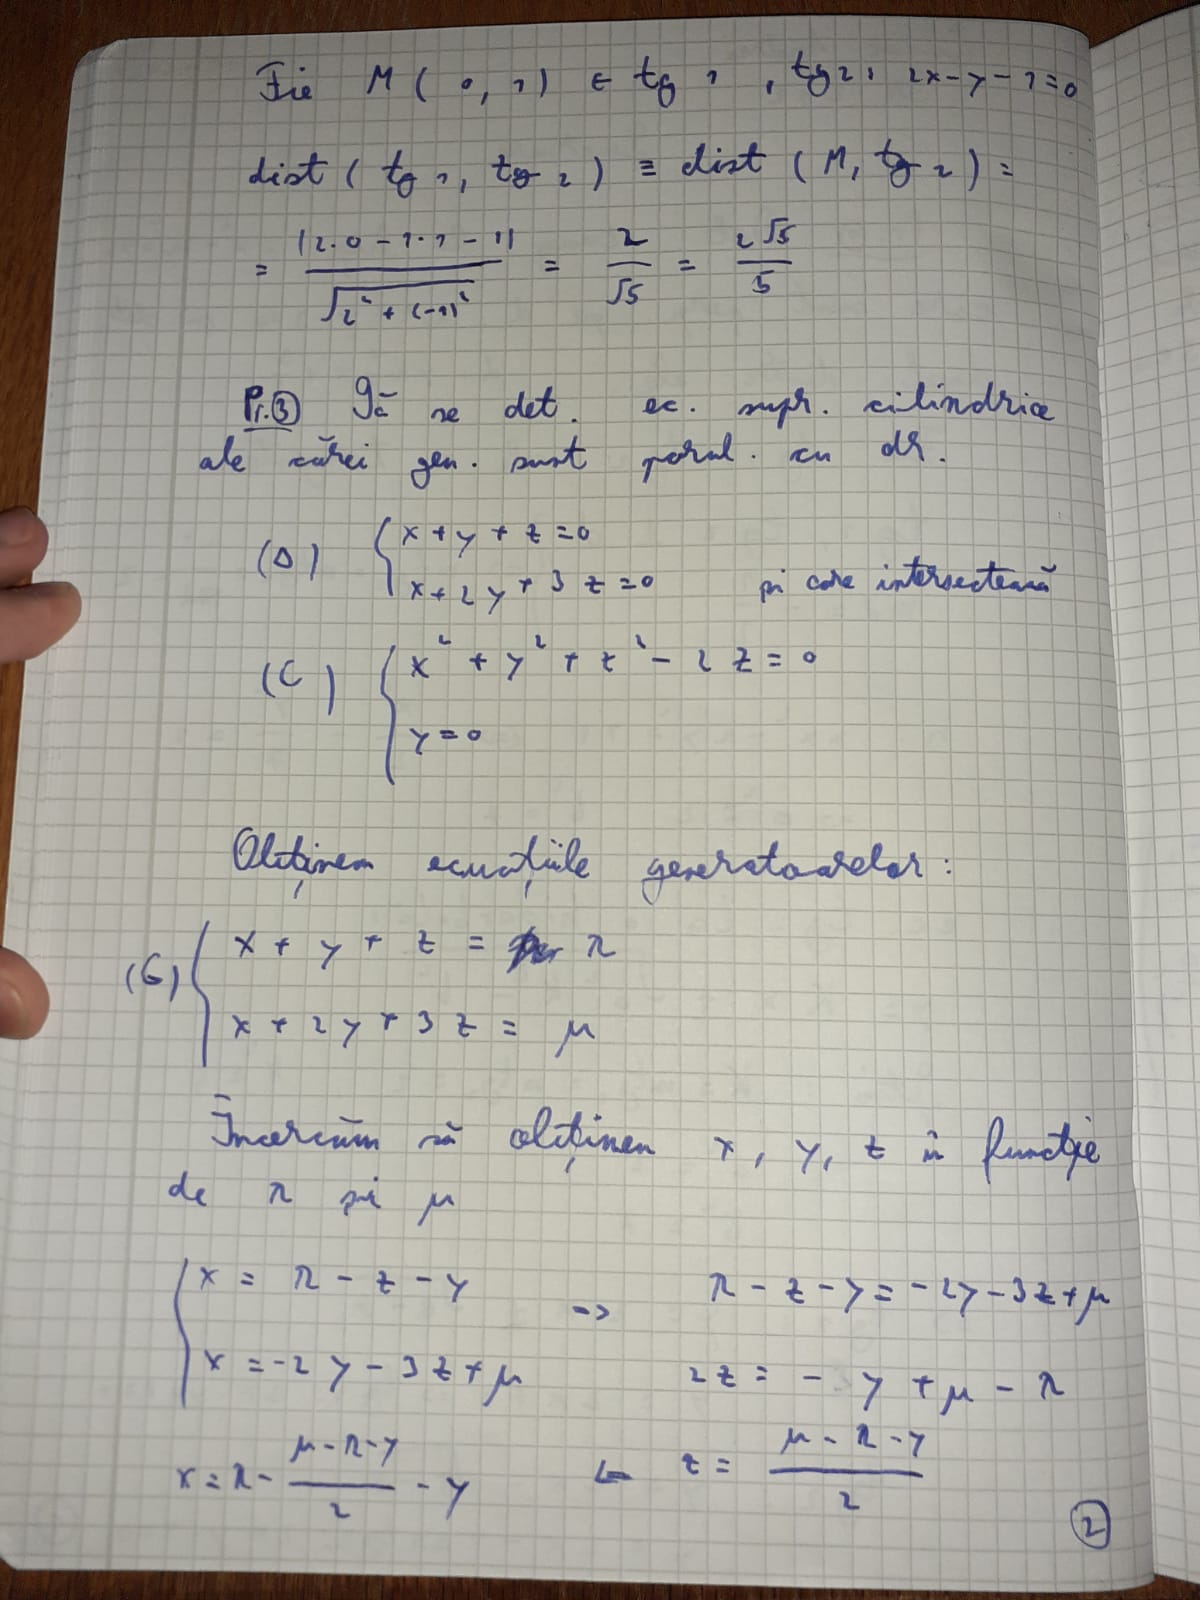 Fie M(0,1) ∈ tg 1, tg 2: 2x-y-1=0
dist(tg 1, tg 2) ≡ dist(M, tg 2) =
= |2·0-1·1-1| / √(2²+(-1)²) = 2/√5 = 2√5/5
Pr.③ Să se det. ec. supr. cilindrice
ale cărei gen. sunt paral. cu dr.
(Δ) { x+y+z=0
x+2y+3z=0 și care intersectează
(C) { x²+y²+z²-2z=0
y=0
Obținem ecuațiile generatoarelor:
(G) { x+y+z = λ
x+2y+3z = μ
Încercăm să obținem x, y, z în funcție
de λ și μ
{ x = λ-z-y => λ-z-y=-2y-3z+μ
x=-2y-3z+μ 2z = -y+μ-λ
x=λ-(μ-λ-y)/2-y <= z = (μ-λ-y)/2
②